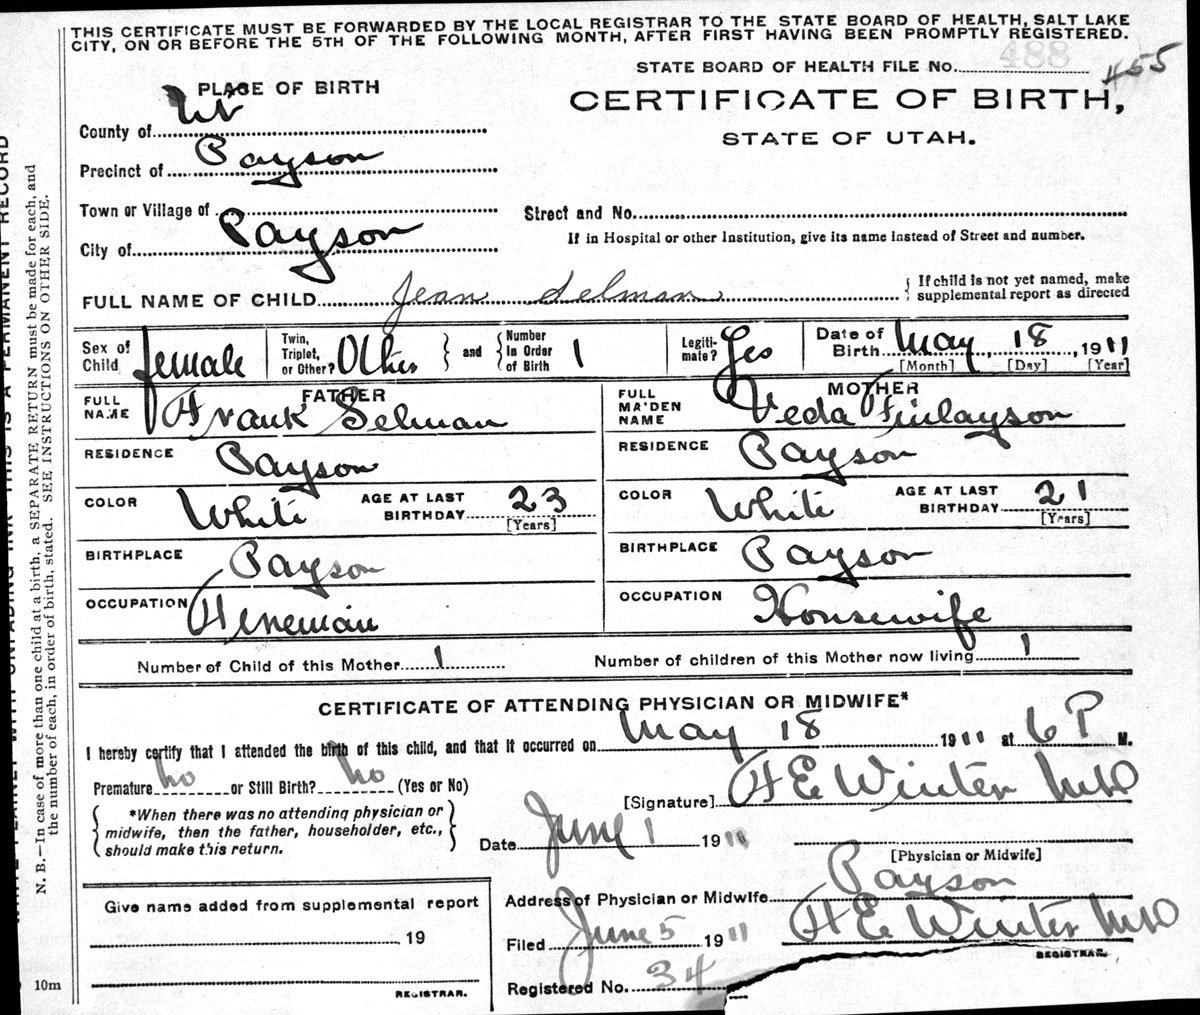 THIS CERTIFICATE MUST BE FORWARDED BY THE LOCAL REGISTRAR TO THE STATE BOARD OF HEALTH, SALT LAKE
CITY, ON OR BEFORE THE 5TH OF THE FOLLOWING MONTH, AFTER FIRST HAVING BEEN PROMPTLY REGISTERED.
488
STATE BOARD OF HEALTH FILE No. 455
PLACE OF BIRTH
CERTIFICATE OF BIRTH,
STATE OF UTAH.
County of Ut
Precinct of Payson
Town or Village of
Street and No.
City of Payson
If in Hospital or other Institution, give its name instead of Street and number.
FULL NAME OF CHILD Jean Selman
{ If child is not yet named, make
supplemental report as directed
Sex of Child female
Twin, Triplet, or Other? Other } and { Number in Order of Birth 1
Legiti-mate? Yes
Date of Birth May 18, 1911
[Month] [Day] [Year]
FATHER
FULL NAME Frank Selman
RESIDENCE Payson
COLOR White AGE AT LAST BIRTHDAY 23
[Years]
BIRTHPLACE Payson
OCCUPATION
MOTHER
FULL MAIDEN NAME Veda Finlayson
RESIDENCE Payson
COLOR White AGE AT LAST BIRTHDAY 21
[Years]
BIRTHPLACE Payson
OCCUPATION Housewife
Number of Child of this Mother 1 Number of children of this Mother now living 1
CERTIFICATE OF ATTENDING PHYSICIAN OR MIDWIFE*
I hereby certify that I attended the birth of this child, and that it occurred on May 18 1911 at 6 P M.
Premature no or Still Birth? no (Yes or No)
[Signature] H E Winter MD
{ *When there was no attending physician or
midwife, then the father, householder, etc.,
should make this return. }
Date June 1 1911
[Physician or Midwife]
Give name added from supplemental report
19
REGISTRAR.
Address of Physician or Midwife Payson
Filed June 5 1911 H E Winter MD
REGISTRAR.
Registered No. 34
10m
N. B.—In case of more than one child at a birth, a SEPARATE RETURN must be made for each, and
the number of each, in order of birth, stated. SEE INSTRUCTIONS ON OTHER SIDE.
THIS IS A PERMANENT RECORD